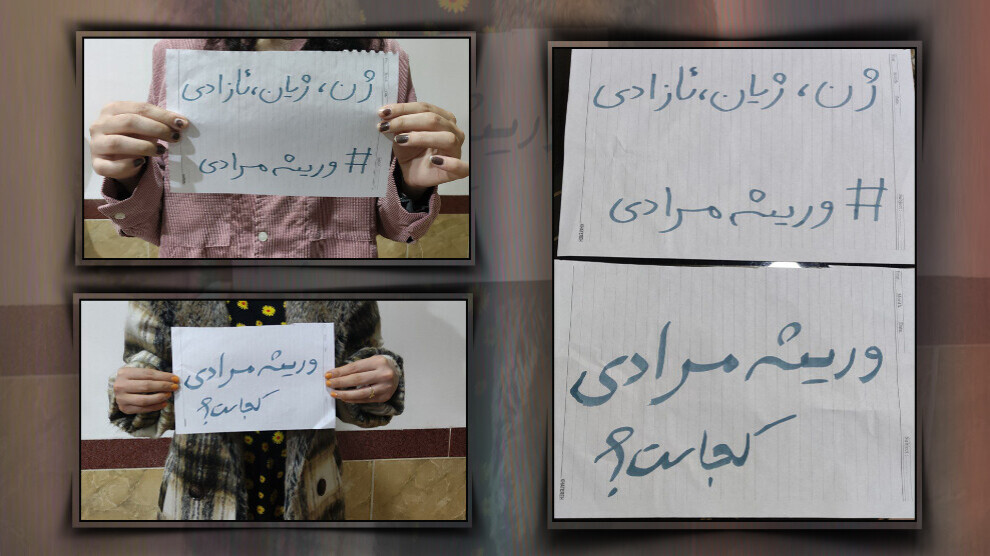 ژن، ژیان، ئازادی
# وریشه مرادی
وریشه مرادی
کجاست؟
ژن، ژیان، ئازادی
# وریشه مرادی
وریشه مرادی
کجاست؟